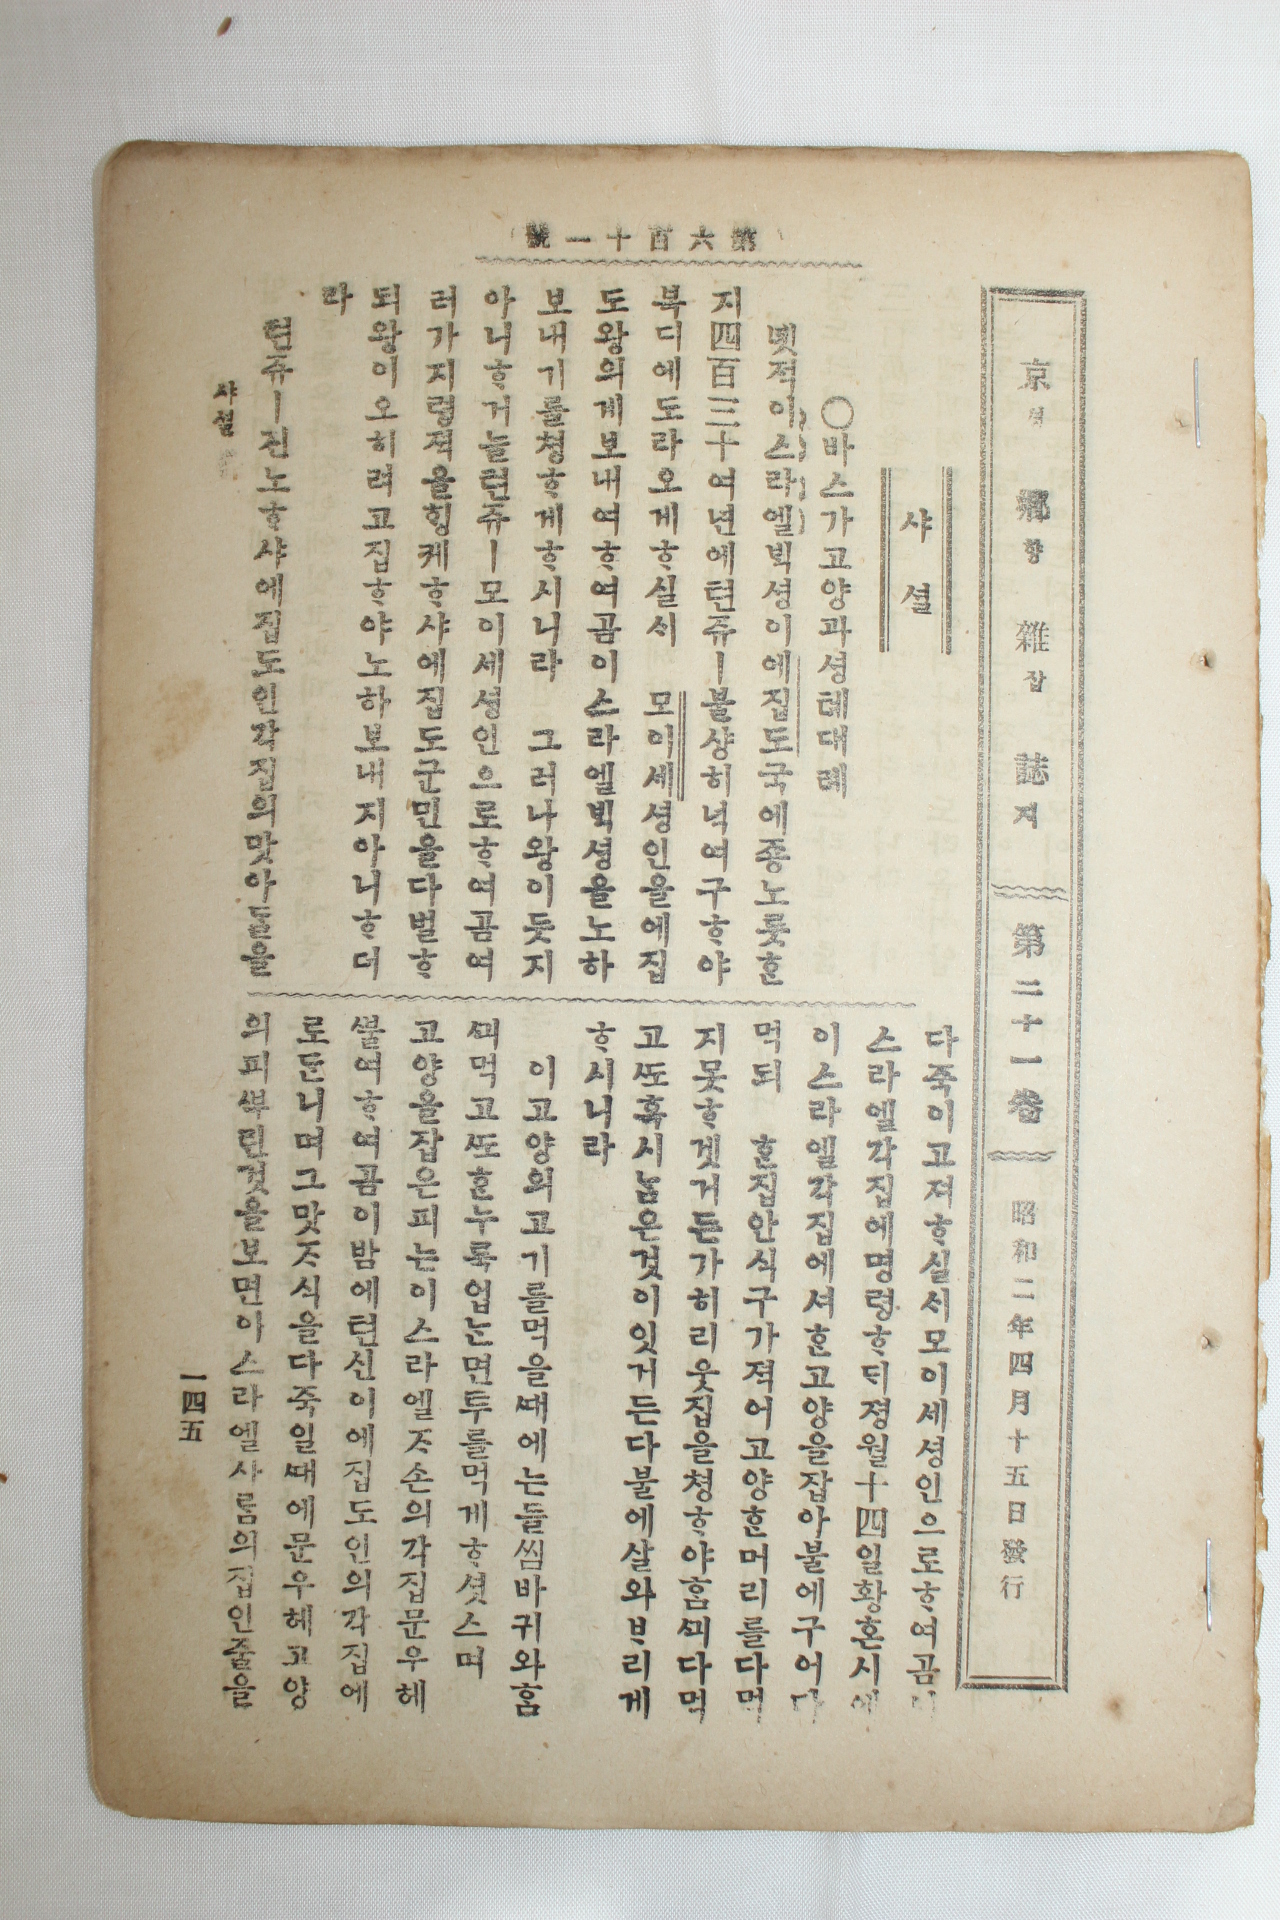 京경 鄕향 雜잡 誌지 第二十一卷 昭和二年四月十五日發行
第六百十一號
샤셜
○바스가고양과셩톄대례
녯적이스라엘ᄇᆡᆨ셩이에집도국에죵노릇ᄒᆞᆫ
지四百三十여년에텬쥬ㅣ불샹히넉여구ᄒᆞ야
복디에도라오게ᄒᆞ실ᄉᆡ 모이세셩인을에집
도왕의게보내여ᄒᆞ여곰이스라엘ᄇᆡᆨ셩을노하
보내기를쳥ᄒᆞ게ᄒᆞ시니라 그러나왕이듯지
아니ᄒᆞ거늘텬쥬ㅣ모이세셩인으로ᄒᆞ여곰여
러가지령젹을ᄒᆡᆼ케ᄒᆞ샤에집도군민을다벌ᄒᆞ
되왕이오히려고집ᄒᆞ야노하보내지아니ᄒᆞ더
라
텬쥬ㅣ진노ᄒᆞ샤에집도인각집의맛아ᄃᆞᆯ을
다죽이고져ᄒᆞ실ᄉᆡ모이세셩인으로ᄒᆞ여곰
스라엘각집에명령ᄒᆞᄃᆡ졍월十四일황혼시에
이스라엘각집에셔ᄒᆞᆫ고양을잡아불에구어다
먹되 ᄒᆞᆫ집안식구가젹어고양ᄒᆞᆫ머리를다먹
지못ᄒᆞ겟거든가히리웃집을쳥ᄒᆞ야ᄒᆞᆷᄭᅴ다먹
고ᄯᅩ혹시남은것이잇거든다불에살와ᄇᆞ리게
ᄒᆞ시니라
이고양의고기를먹을ᄯᅢ에는들씸바귀와ᄒᆞᆷ
ᄭᅴ먹고ᄯᅩᄒᆞᆫ누룩업ᄂᆞᆫ면투를먹게ᄒᆞ셧스며
고양을잡은피는이스라엘ᄌᆞ손의각집문우헤
ᄲᅮᆯ여ᄒᆞ여곰이밤에텬신이에집도인의각집에
로ᄃᆞᆫ니며그맛ᄌᆞ식을다죽일ᄯᅢ에문우헤고양
의피ᄲᅮ린것을보면이스라엘사ᄅᆞᆷ의집인줄을
샤셜
一四五